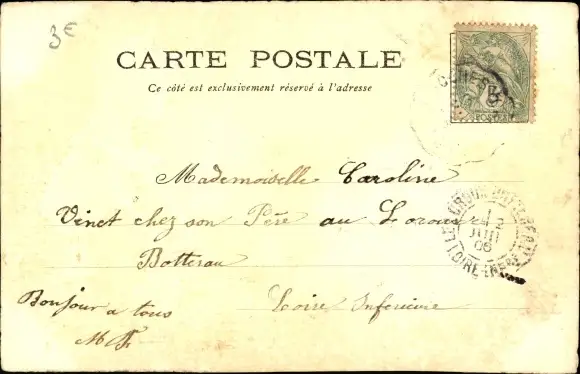 3€
CARTE POSTALE
Ce côté est exclusivement réservé à l'adresse
Mademoiselle Caroline
Vinet chez son Père au Loroux
Bottereau
Bonjour a tous
Loire Inferieure
M F
2
JUIN
06
LOIRE-INFRE
5
POSTES